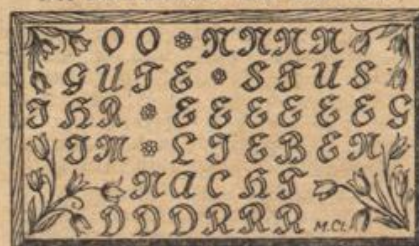 O O ❁ N N N N
G U T E ❁ S T U S
I H R ❁ E E E E E E G
I M ❁ L I E B E N
N A C H T
D D D R R R M.Cl.